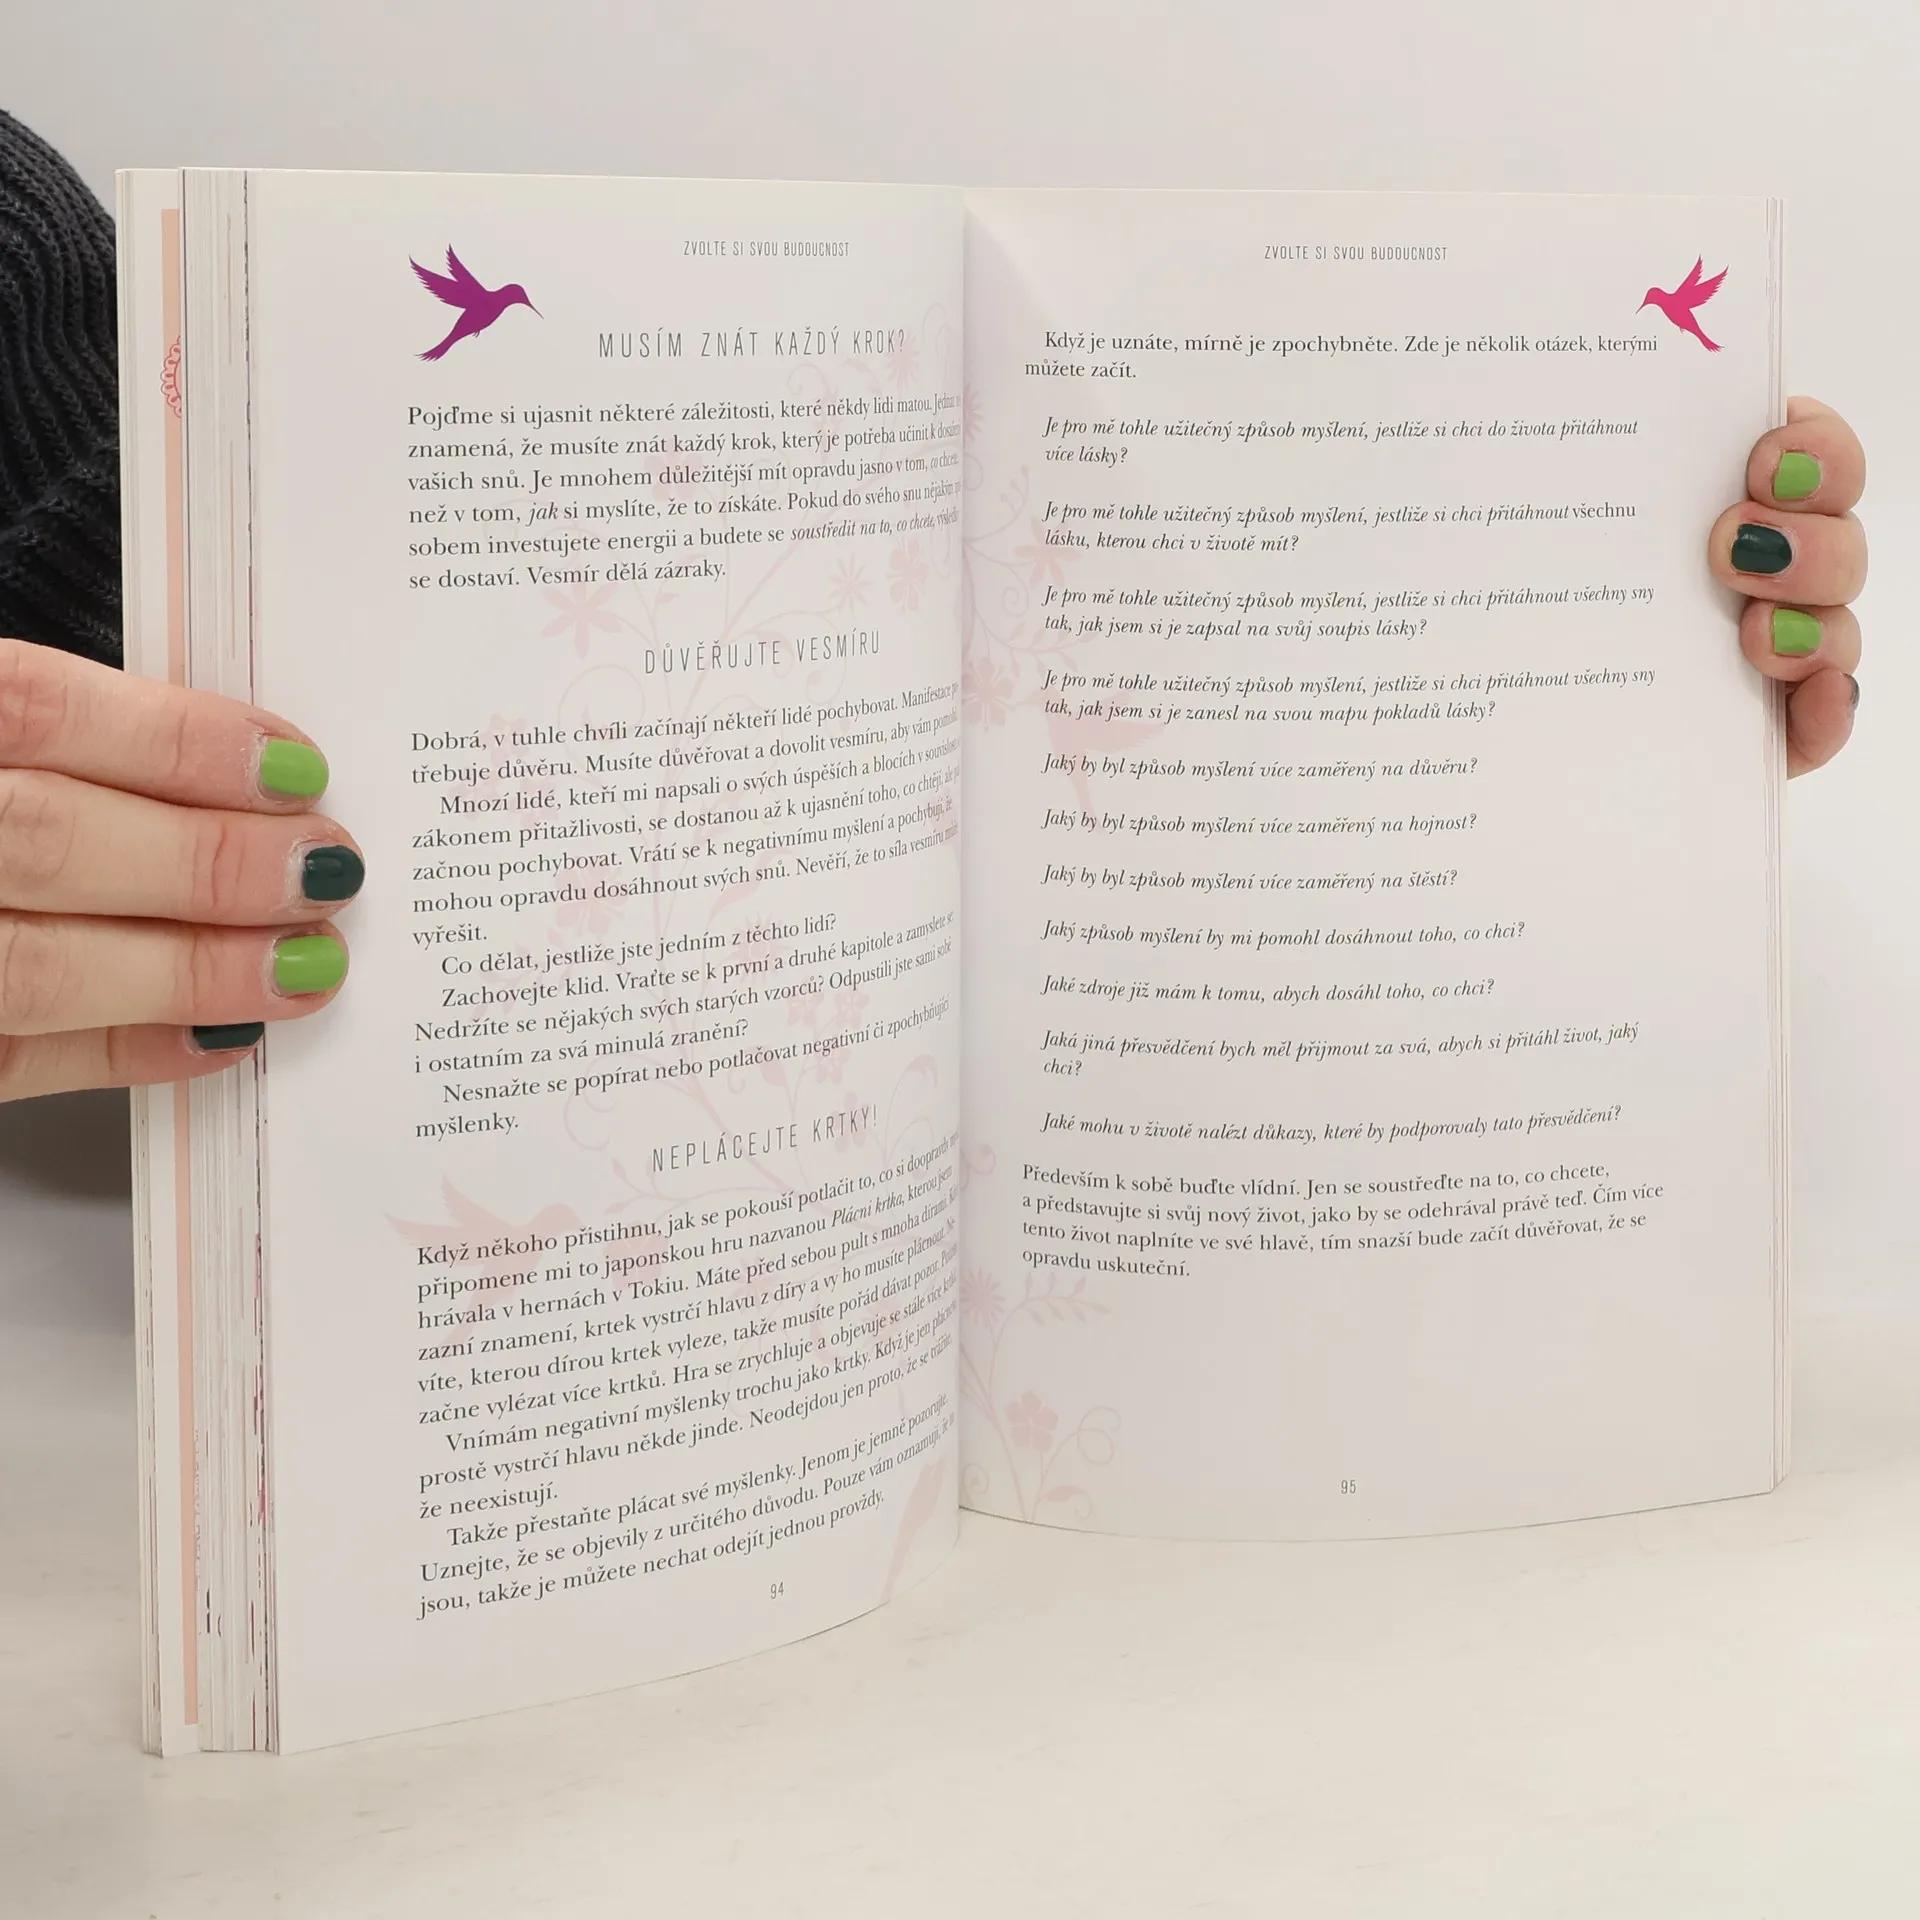 ZVOLTE SI SVOU BUDOUCNOST
MUSÍM ZNÁT KAŽDÝ KROK?
Pojďme si ujasnit některé záležitosti, které někdy lidi matou. Jednat
znamená, že musíte znát každý krok, který je potřeba učinit k dosažení
vašich snů. Je mnohem důležitější mít opravdu jasno v tom, co chcete,
než v tom, jak si myslíte, že to získáte. Pokud do svého snu nějakým
sobem investujete energii a budete se soustředit na to, co chcete, výsledky
se dostaví. Vesmír dělá zázraky.
DŮVĚŘUJTE VESMÍRU
Dobrá, v tuhle chvíli začínají někteří lidé pochybovat. Manifestace
třebuje důvěru. Musíte důvěřovat a dovolit vesmíru, aby vám pomohl.
Mnozí lidé, kteří mi napsali o svých úspěších a blocích v souvislosti
zákonem přitažlivosti, se dostanou až k ujasnění toho, co chtějí, ale pak
začnou pochybovat. Vrátí se k negativnímu myšlení a pochybují, že
mohou opravdu dosáhnout svých snů. Nevěří, že to síla vesmíru může
vyřešit.
Co dělat, jestliže jste jedním z těchto lidí?
Zachovejte klid. Vraťte se k první a druhé kapitole a zamyslete se:
Nedržíte se nějakých svých starých vzorců? Odpustili jste sami sobě
i ostatním za svá minulá zranění?
Nesnažte se popírat nebo potlačovat negativní či zpochybňující
myšlenky.
NEPLÁCEJTE KRTKY!
Když někoho přistihnu, jak se pokouší potlačit to, co si doopravdy
připomene mi to japonskou hru nazvanou Plácni krtka, kterou jsem
hrávala v hernách v Tokiu. Máte před sebou pult s mnoha dírami. Když
zazní znamení, krtek vystrčí hlavu z díry a vy ho musíte plácnout. Ne-
víte, kterou dírou krtek vyleze, takže musíte pořád dávat pozor. Potom
začne vylézat více krtků. Hra se zrychluje a objevuje se stále více krtků.
Vnímám negativní myšlenky trochu jako krtky. Když je jen plácnete,
prostě vystrčí hlavu někde jinde. Neodejdou jen proto, že se tváříte,
že neexistují.
Takže přestaňte plácat své myšlenky. Jenom je jemně pozorujte.
Uznejte, že se objevily z určitého důvodu. Pouze vám oznamují, že
jsou, takže je můžete nechat odejít jednou provždy.
94
ZVOLTE SI SVOU BUDOUCNOST
Když je uznáte, mírně je zpochybněte. Zde je několik otázek, kterými
můžete začít.
Je pro mě tohle užitečný způsob myšlení, jestliže si chci do života přitáhnout
více lásky?
Je pro mě tohle užitečný způsob myšlení, jestliže si chci přitáhnout všechnu
lásku, kterou chci v životě mít?
Je pro mě tohle užitečný způsob myšlení, jestliže si chci přitáhnout všechny sny
tak, jak jsem si je zapsal na svůj soupis lásky?
Je pro mě tohle užitečný způsob myšlení, jestliže si chci přitáhnout všechny sny
tak, jak jsem si je zanesl na svou mapu pokladů lásky?
Jaký by byl způsob myšlení více zaměřený na důvěru?
Jaký by byl způsob myšlení více zaměřený na hojnost?
Jaký by byl způsob myšlení více zaměřený na štěstí?
Jaký způsob myšlení by mi pomohl dosáhnout toho, co chci?
Jaké zdroje již mám k tomu, abych dosáhl toho, co chci?
Jaká jiná přesvědčení bych měl přijmout za svá, abych si přitáhl život, jaký
chci?
Jaké mohu v životě nalézt důkazy, které by podporovaly tato přesvědčení?
Především k sobě buďte vlídní. Jen se soustřeďte na to, co chcete,
a představujte si svůj nový život, jako by se odehrával právě teď. Čím více
tento život naplníte ve své hlavě, tím snazší bude začít důvěřovat, že se
opravdu uskuteční.
95